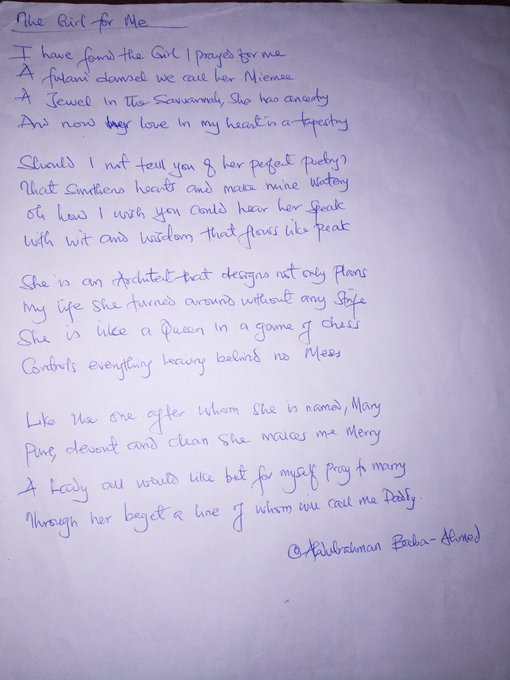 The Girl for Me
I have found the Girl I prayed for me
A fulani damsel we call her Miemee
A Jewel in the Savannah, She has ancestry
And now her love in my heart is a tapestry
Should I not tell you of her perfect poetry?
That smthens hearts and make mine watery
Oh how I wish you could hear her speak
With wit and wisdom that flows like peak
She is an Architect that designs not only plans
My life she turned around without any strife
She is like a Queen in a game of chess
Controls everything leaving behind no Mess
Like the one after whom she is named, Mary
Pure, devout and clean she makes me Merry
A Lady all would like but for myself pray to marry
Through her beget a line of whom will call me Daddy.
@ Baba-Ahmed